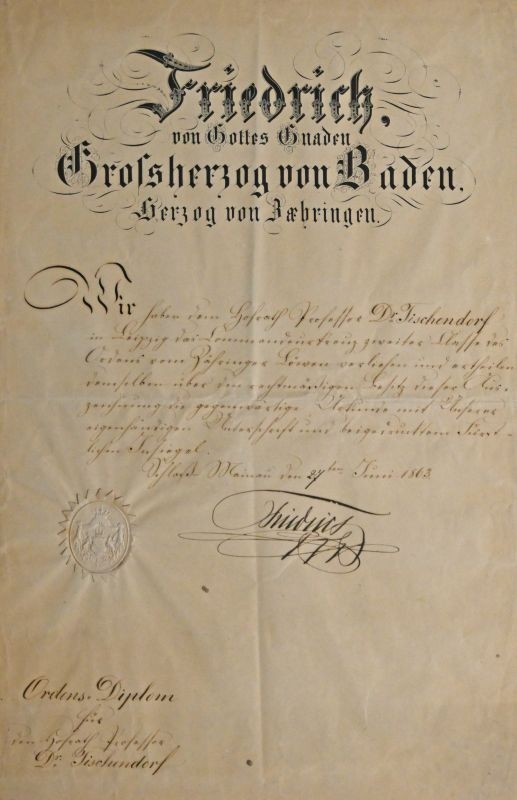 Friedrich,
von Gottes Gnaden
Grossherzog von Baden,
Herzog von Zæhringen.
Wir haben dem Hofrath Professor Dr. Tischendorf
in Leipzig das Commandeurkreuz zweiter Klasse des
Ordens vom Zähringer Löwen verliehen und ertheilen
demselben über den rechtmäßigen Besitz dieser Aus-
zeichnung die gegenwärtige Urkunde mit Unserer
eigenhändigen Unterschrift und beigedrucktem Fürst-
lichen Insiegel.
Schloß Mainau den 27ten Juni 1863.
Friedrich
Ordens-Diplom
für
den Hofrath Professor
Dr. Tischendorf